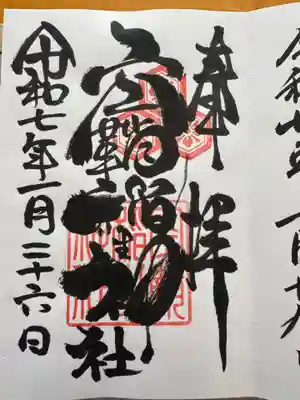 令和七年一月
奉拝
空鞘稲生神社
令和七年一月二十六日